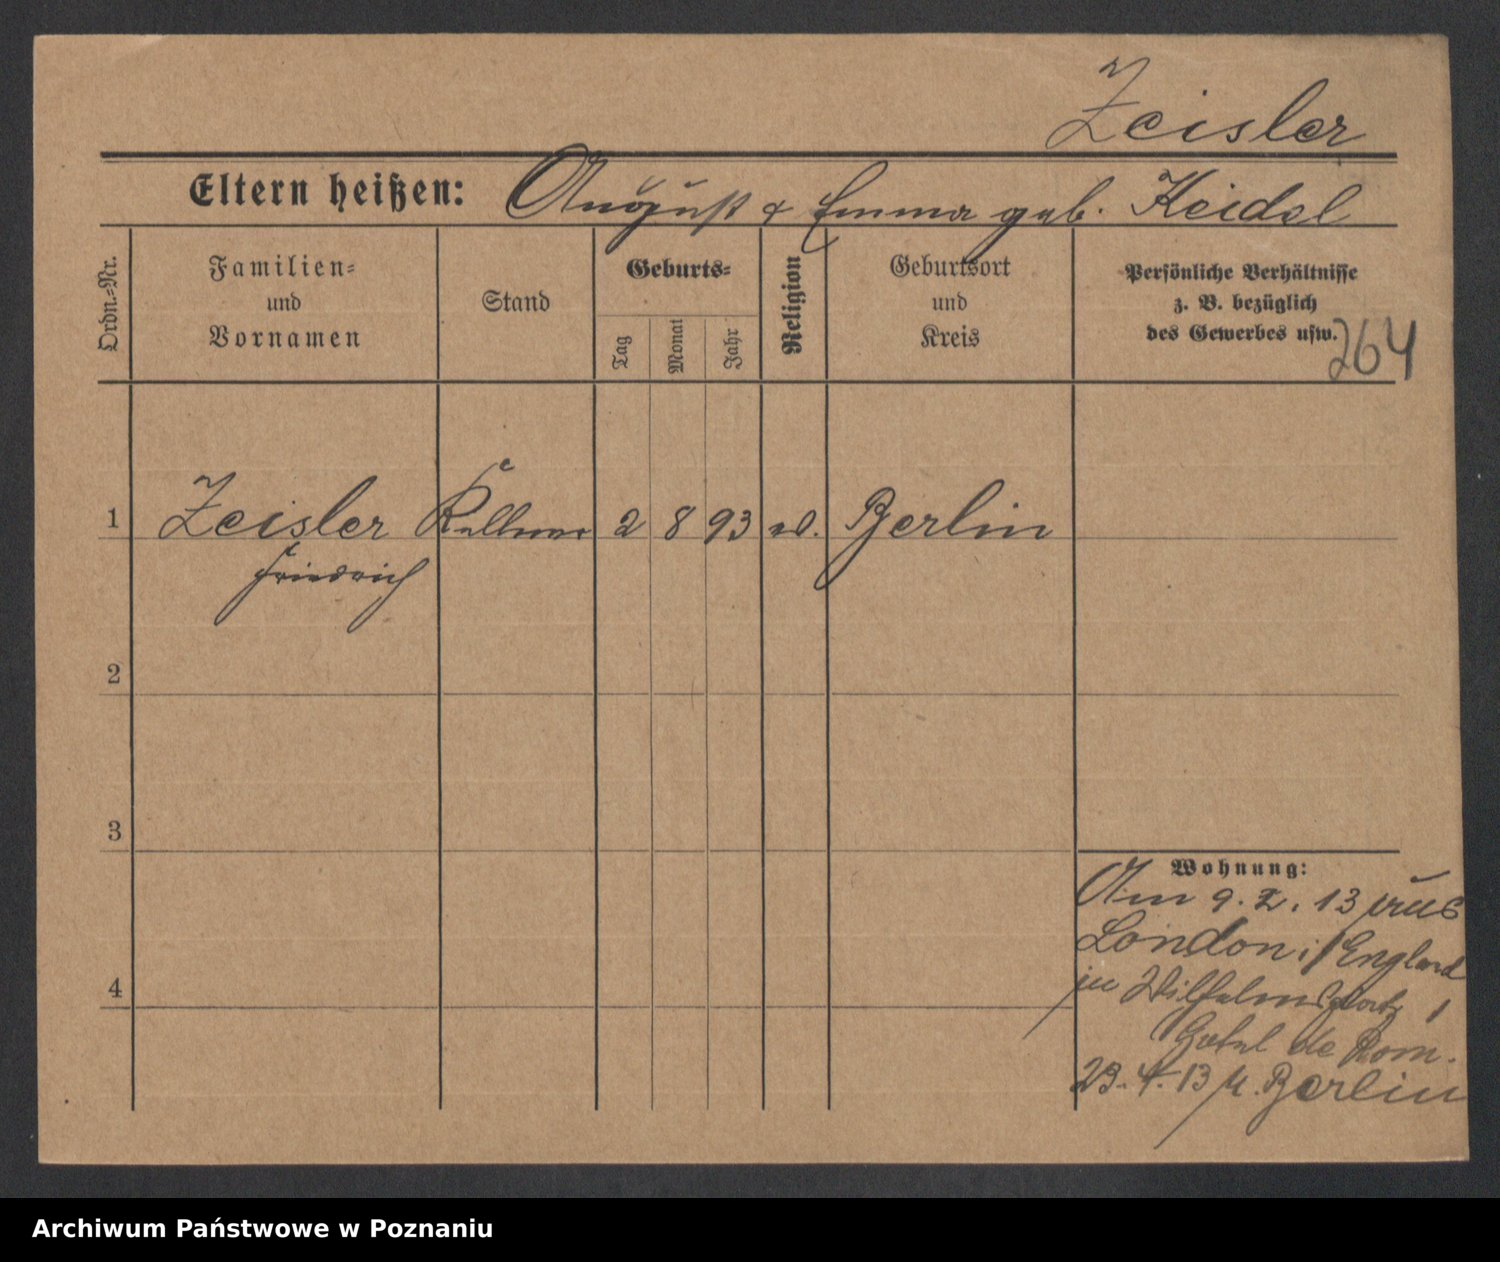 Zeisler
Eltern heißen: August & Emma geb. Keidel
Ordn.=Nr.
Familien=
und
Vornamen
Stand
Geburts=
Tag
Monat
Jahr
Religion
Geburtsort
und
Kreis
Persönliche Verhältnisse
z. B. bezüglich
des Gewerbes usw.
264
1 Zeisler Kellner 2 8 93 ev. Berlin
Friedrich
2
3
4
Wohnung:
Am 9. 2. 13 aus
London i/England
in Wilhelmsplatz 1
Hotel de Rom.
23. 4. 13 n. Berlin
Archiwum Państwowe w Poznaniu